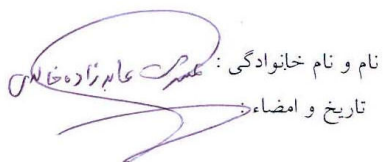 نام و نام خانوادگی : عابدزاده خالدی
تاریخ و امضاء: